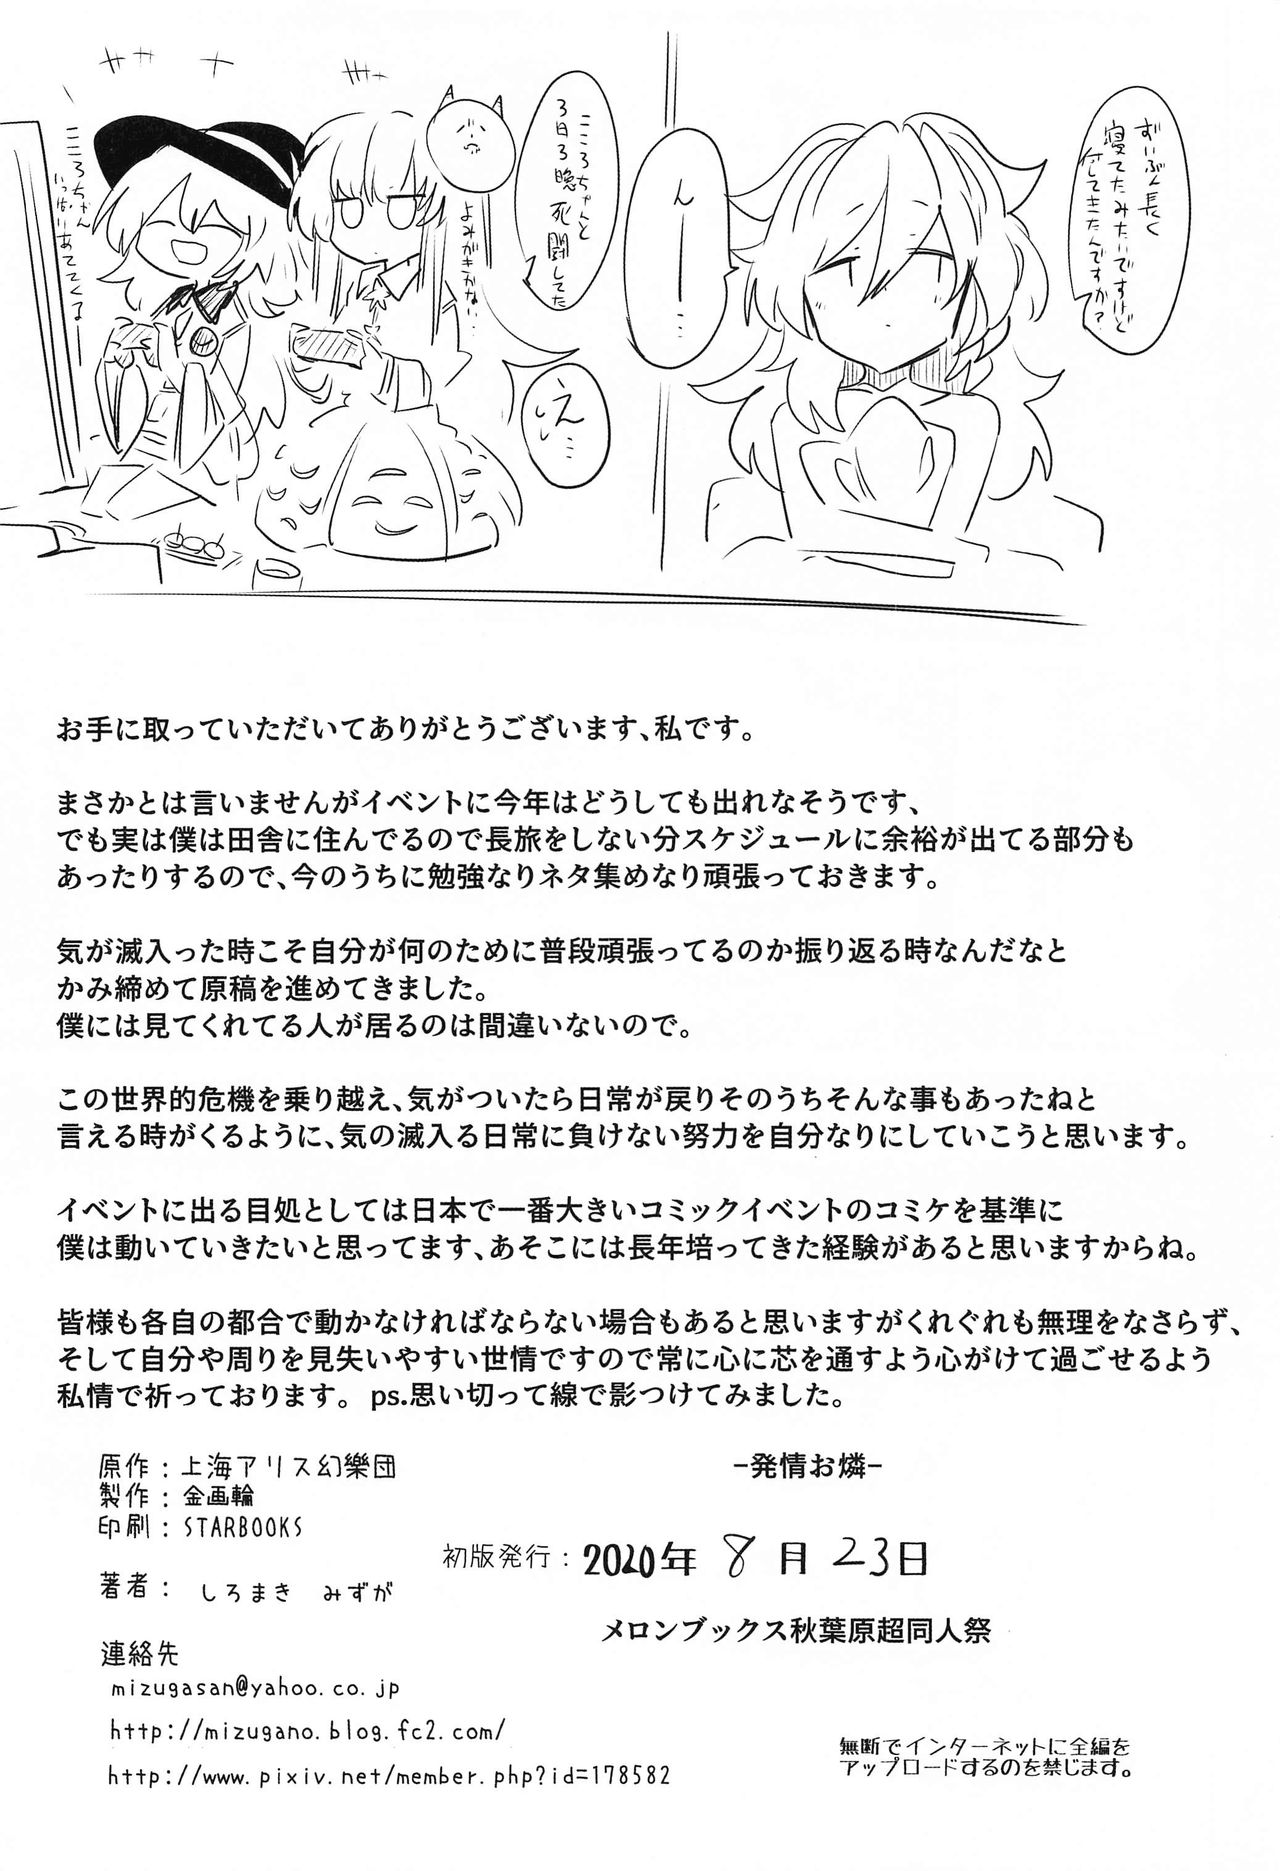 ずいぶん長く
寝てたみたいですけど
何してきたんですか?
んー…
こころちゃんと
3日3晩死闘してた
え…
よみがきかない…
こころちゃん
いっぱいあててくるー
お手に取っていただいてありがとうございます、私です。
まさかとは言いませんがイベントに今年はどうしても出れなそうです、
でも実は僕は田舎に住んでるので長旅をしない分スケジュールに余裕が出てる部分も
あったりするので、今のうちに勉強なりネタ集めなり頑張っておきます。
気が滅入った時こそ自分が何のために普段頑張ってるのか振り返る時なんだなと
かみ締めて原稿を進めてきました。
僕には見てくれてる人が居るのは間違いないので。
この世界的危機を乗り越え、気がついたら日常が戻りそのうちそんな事もあったねと
言える時がくるように、気の滅入る日常に負けない努力を自分なりにしていこうと思います。
イベントに出る目処としては日本で一番大きいコミックイベントのコミケを基準に
僕は動いていきたいと思ってます、あそこには長年培ってきた経験があると思いますからね。
皆様も各自の都合で動かなければならない場合もあると思いますがくれぐれも無理をなさらず、
そして自分や周りを見失いやすい世情ですので常に心に芯を通すよう心がけて過ごせるよう
私情で祈っております。 ps.思い切って線で影つけてみました。
原作:上海アリス幻樂団
製作:金画輪
印刷:STARBOOKS
著者: しろまき みずが
連絡先
mizugasan@yahoo.co.jp
http://mizugano.blog.fc2.com/
http://www.pixiv.net/member.php?id=178582
−発情お燐−
初版発行:2020年 8月23日
メロンブックス秋葉原超同人祭
無断でインターネットに全編を
アップロードするのを禁じます。